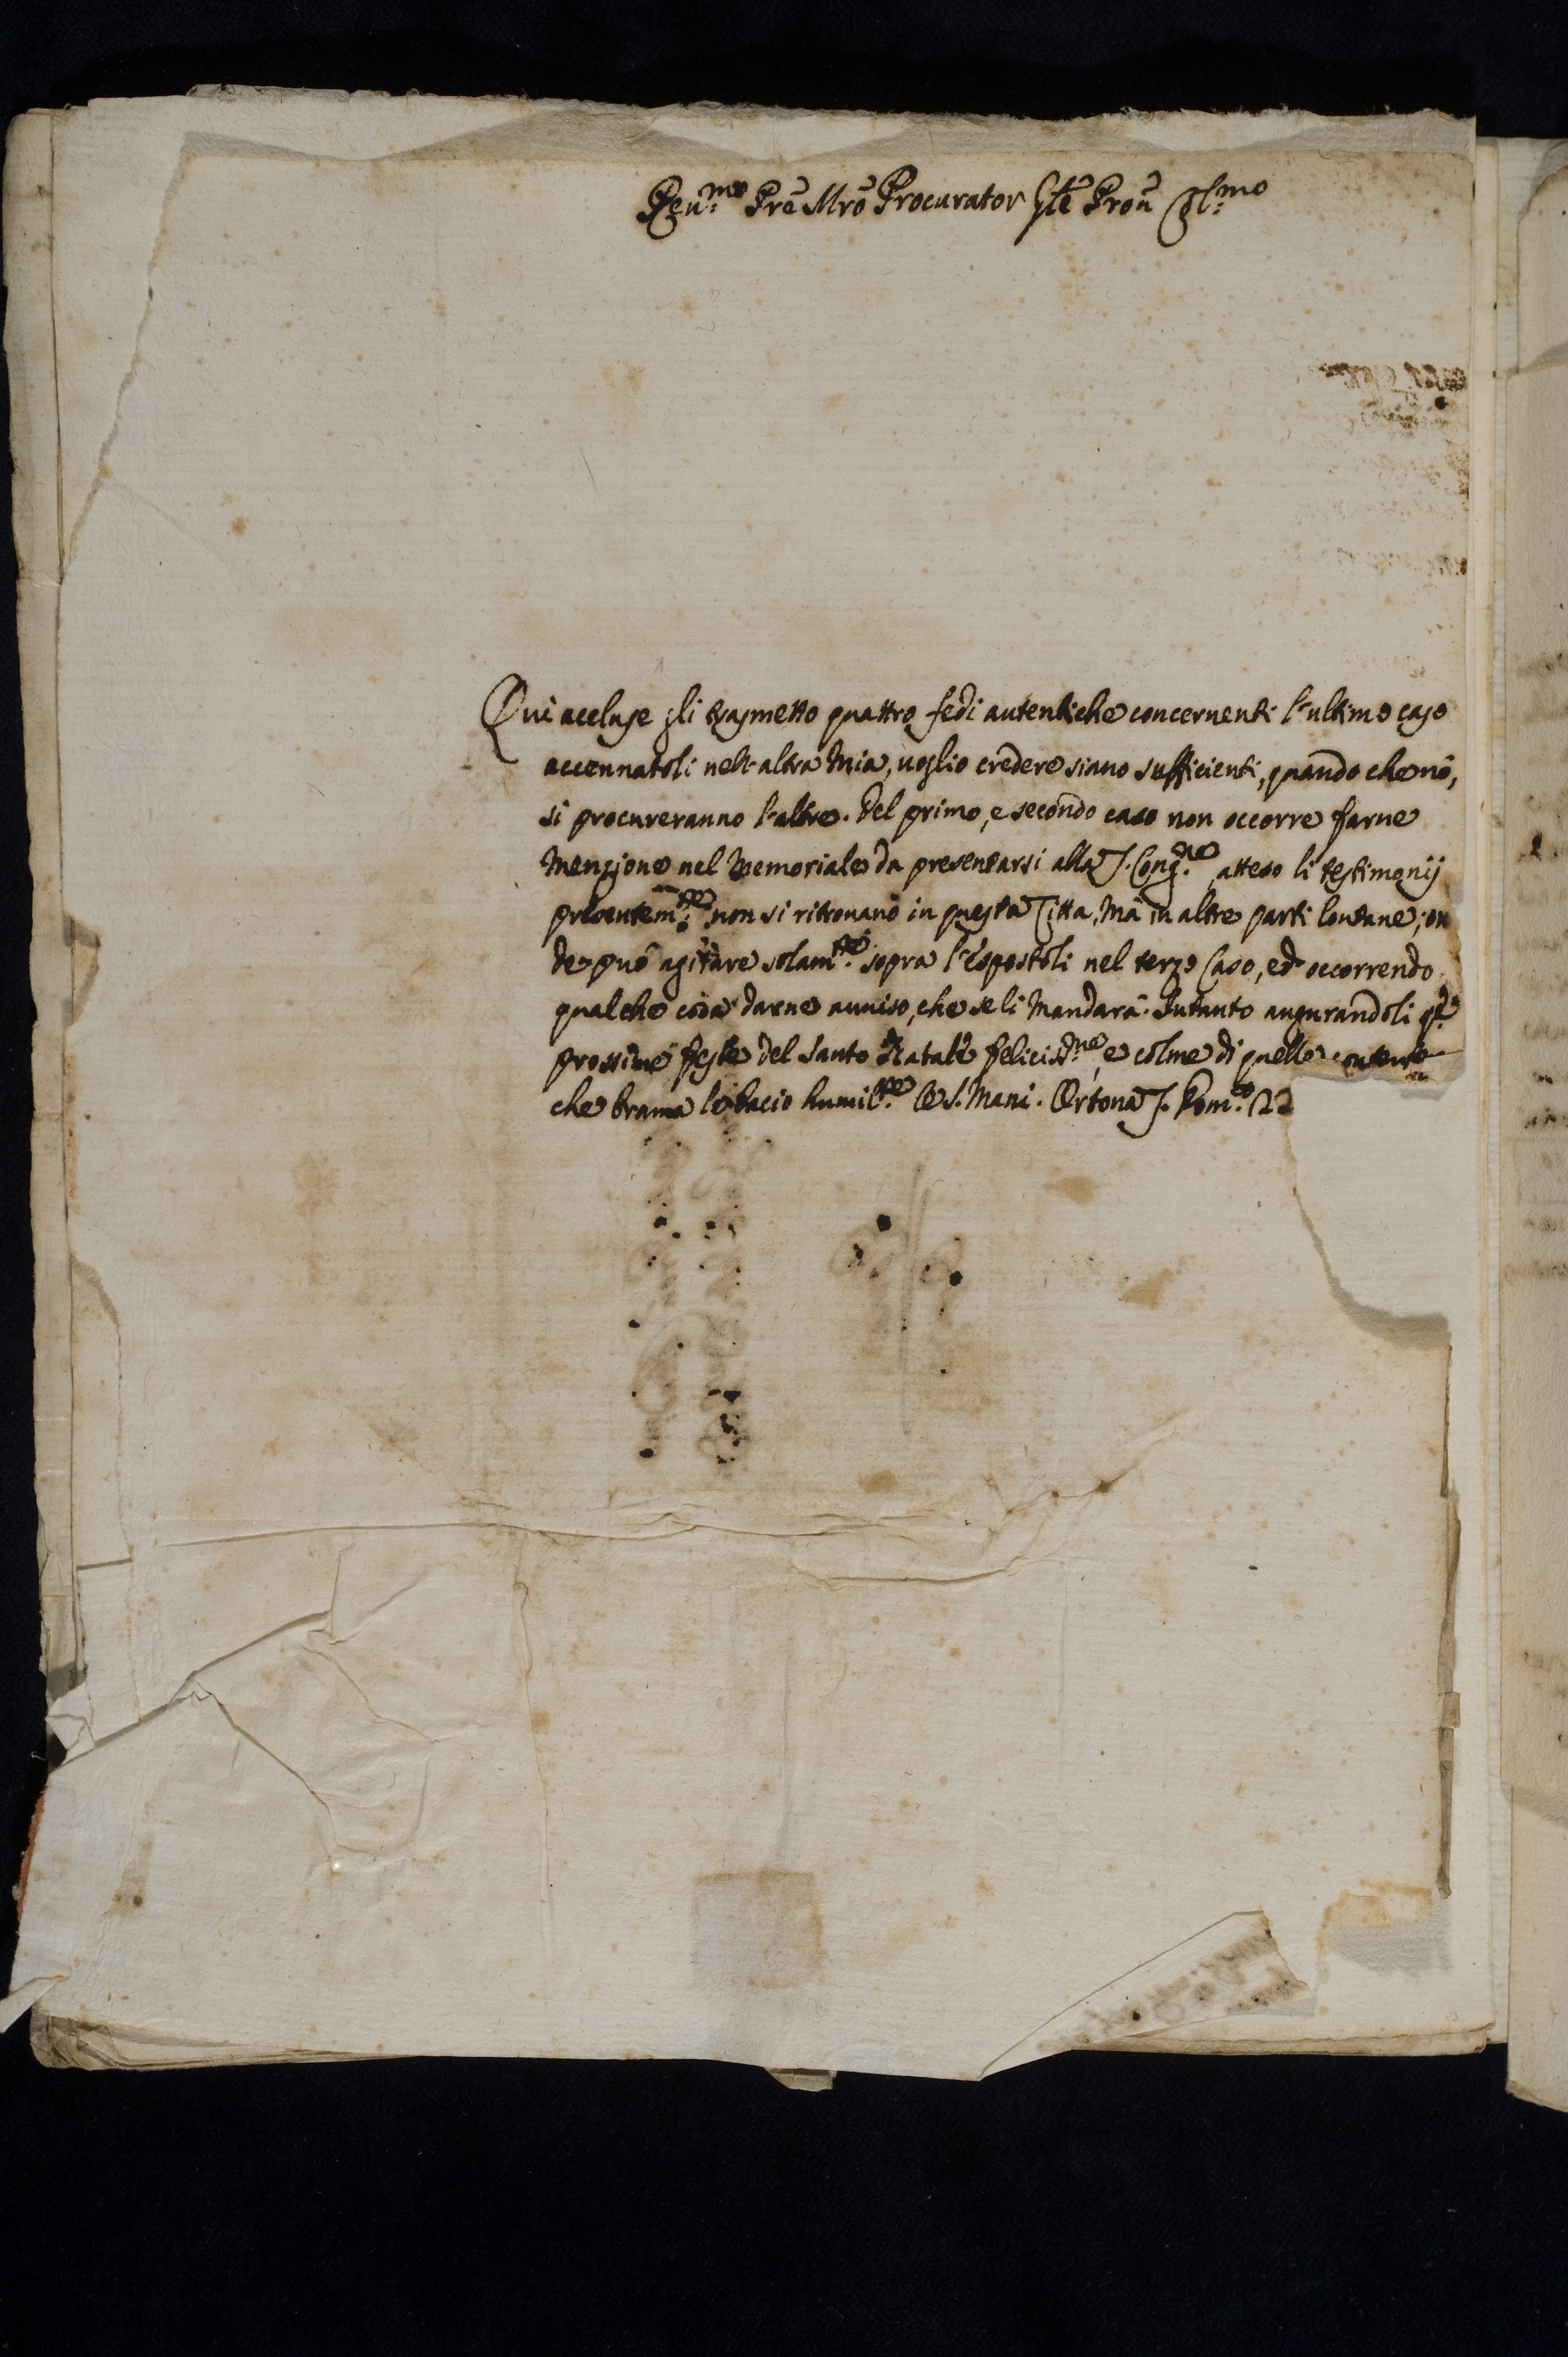 Reu.mo Pre Mro Procurator Gle Pron Col.mo
Qui accluse gli trasmetto quattro fedi autentiche concernenti l'ultimo caso
accennatoli nell'altra mia, uoglio credere siano sufficienti, quando che nõ,
si procureranno l'altre. Del primo, e secondo caso non occorre farne
menzione nel memoriale da presentarsi alla S. Cong.ne, atteso li testimonij
presentem.te non si ritrouano in questa Citta, mà in altre parti lontane; on
de può agitare solam.te sopra l'espostoli nel terzo Caso, ed occorrendo
qualche cosa darne auuiso, che se li mandarà. Intanto augurandoli q.te
prossime feste del Santo Natale feliciss.me, e colme di quelle contente
che brama le bacio humil.te le S. Mani. Ortona S. Dom.co 22